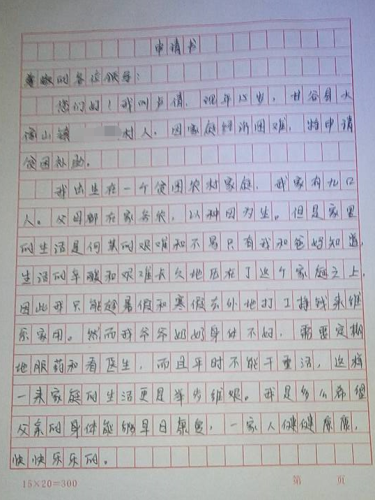 申请书
尊敬的各位领导：
您们好！我叫卢倩，现年15岁，甘谷县大
像山镇 村人，因家庭经济困难，特申请
贫困补助。
我出生在一个贫困农村家庭，我家有九口
人。父母都在家务农，以种田为生。但是家里
的生活是何其的艰难和不易只有我和爸妈知道，
生活的辛酸和艰难长久地压在了这个家庭之上，
因此我只能趁暑假和寒假去外地打工挣钱来维
系家用。然而我爷爷奶奶身体不好，需要定期
地服药和看医生，而且平时不能干重活，这样
一来家庭的生活更是举步维艰。我是多么希望
父亲的身体能够早日康复，一家人健健康康，
快快乐乐的。
15×20=300
第 页